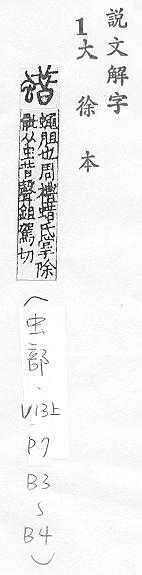 説文解字
1大徐本
蜡
蠅䏣也周禮蜡氏掌除
骴从虫昔聲鉏駕切
(虫部.V13上 P7 B3~B4)